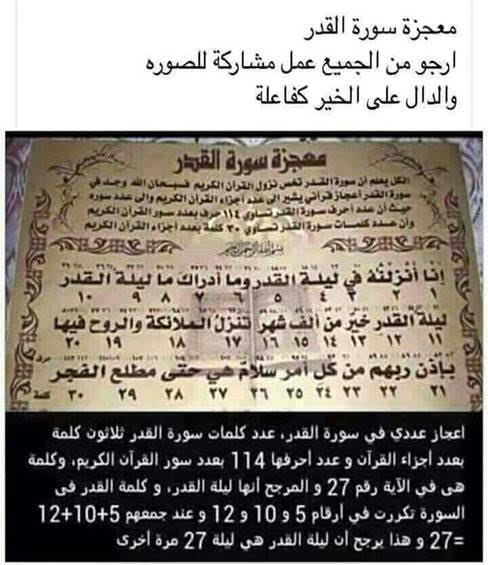 معجزة سورة القدر
ارجو من الجميع عمل مشاركة للصوره
والدال على الخير كفاعلة
معجزة سورة القدر
الكل يعلم أن سورة القدر تخص نزول القرآن الكريم فسبحان الله وجد في
سورة القدر أعجاز قرآني يشير الى عدد أجزاء القرآن الكريم والى عدد سوره
حيث أن عدد أحرف سورة القدر تساوي ١١٤ حرف بعدد سور القرآن الكريم
وأن عدد كلمات سورة القدر تساوي ٣٠ كلمة بعدد أجزاء القرآن الكريم
بسم الله الرحمن الرحيم
إنا أنزلنه في ليلة القدر وما أدراك ما ليلة القدر
١ ٢ ٣ ٤ ٥ ٦ ٧ ٨ ٩ ١٠
ليلة القدر خير من ألف شهر تنزل الملائكة والروح فيها
١١ ١٢ ١٣ ١٤ ١٥ ١٦ ١٧ ١٨ ١٩ ٢٠
بإذن ربهم من كل أمر سلام هي حتى مطلع الفجر
٢١ ٢٢ ٢٣ ٢٤ ٢٥ ٢٦ ٢٧ ٢٨ ٢٩ ٣٠ كلمة
اعجاز عددي في سورة القدر، عدد كلمات سورة القدر ثلاثون كلمة
بعدد أجزاء القرآن و عدد أحرفها 114 بعدد سور القرآن الكريم، وكلمة
هى في الآية رقم 27 و المرجح أنها ليلة القدر، و كلمة القدر فى
السورة تكررت في أرقام 5 و 10 و 12 و عند جمعهم 5+10+12
=27 و هذا يرجح أن ليلة القدر هي ليلة 27 مرة أخرى